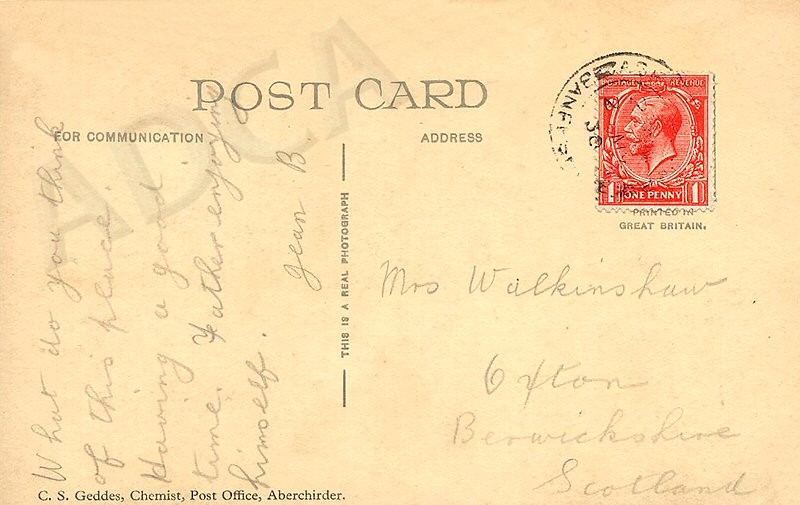 POST CARD
FOR COMMUNICATION
ADDRESS
What do you think
of this place.
Having a good
time. Father enjoying
himself.
Jean B
THIS IS A REAL PHOTOGRAPH
POSTAGE REVENUE
1 ONE PENNY 1
PRINTED IN
GREAT BRITAIN.
Mrs Walkinshaw
Oxton
Berwickshire
Scotland
C. S. Geddes, Chemist, Post Office, Aberchirder.
ADCA